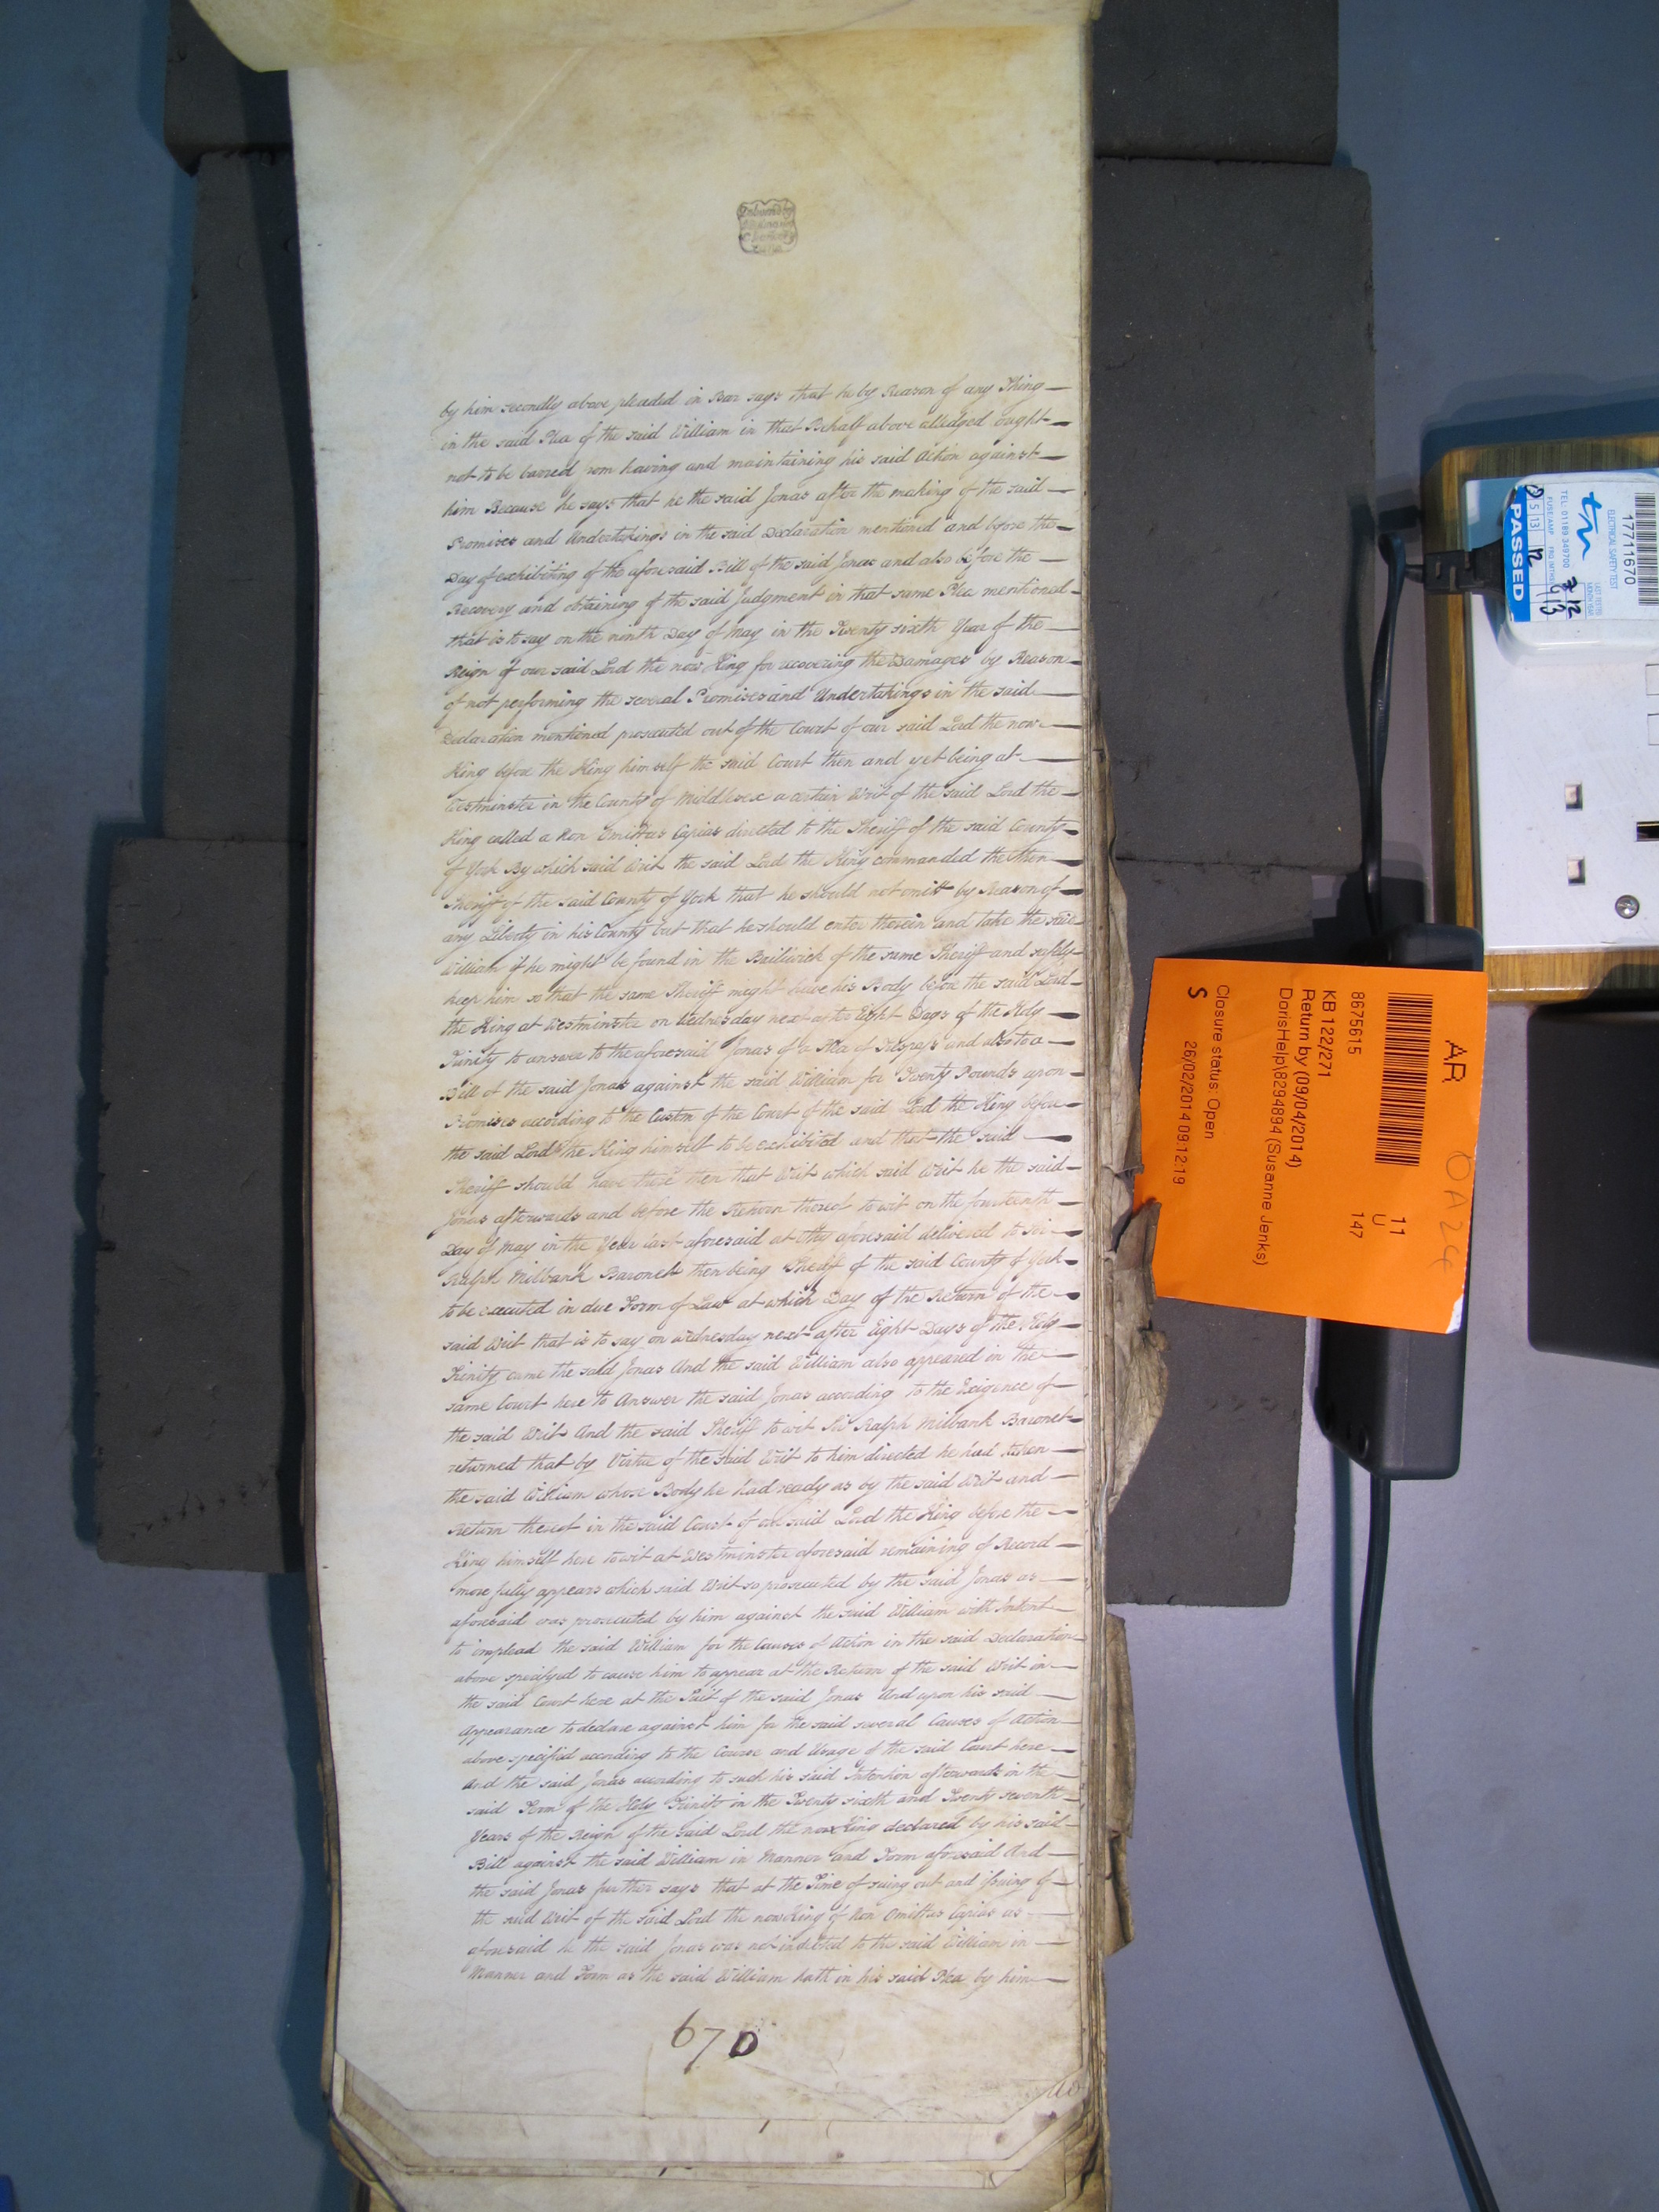 by him secondly above pleaded in Bar says that he by Reason of any Thing
in the said Plea of the said William in that Behalf above alledged ought
not to be barred from having and maintaining his said Action against
him Because he says that he the said Jonas after the making of the said
Promises and Undertakings in the said Declaration mentioned and before the
Day of exhibiting of the aforesaid Bill of the said Jonas and also before the
Recovery and obtaining of the said Judgment in that same Plea mentioned
that is to say on the ninth Day of May in the Twenty sixth Year of the
Reign of our said Lord the now King for recovering the Damages by Reason
of not performing the several Promises and Undertakings in the said
Declaration mentioned prosecuted out of the Court of our said Lord the now
King before the King himself the said Court then and yet being at
Westminster in the County of Middlesex a certain Writ of the said Lord the
King called a Non Omittas Capias directed to the Sheriff of the said County
of York By which said Writ the said Lord the King commanded the then
Sheriff of the said County of York that he should not omitt by Reason of
any Liberty in his County but that he should enter therein and take the said
William if he might be found in the Bailiwick of the same Sheriff and safely
keep him so that the same Sheriff might have his Body before the said Lord
the King at Westminster on Wednesday next after Eight Days of the Holy
Trinity to answer to the aforesaid Jonas of a Plea of Trespass and also to a
Bill of the said Jonas against the said William for Twenty Pounds upon
Promises according to the Custom of the Court of the said Lord the King before
the said Lord the King himself to be exhibited and that the said
Sheriff should have there then that Writ which said Writ he the said
Jonas afterwards and before the Return thereof to wit on the fourteenth
Day of May in the Year last aforesaid at aforesaid delivered to Sir
Ralph Milbank Baronet then being Sheriff of the said County of York
to be executed in due Form of Law at which Day of the Return of the
said Writ that is to say on Wednesday next after Eight Days of the Holy
Trinity came the said Jonas And the said William also appeared in the
same Court here to Answer the said Jonas according to the Exigence of
the said Writ And the said Sheriff to wit Sir Ralph Milbank Baronet
returned that by Virtue of the said Writ to him directed he had taken
the said William whose Body he had ready as by the said Writ and
Return thereof in the said Court of our said Lord the King before the
King himself here to wit at Westminster aforesaid remaining of Record
more fully appears which said Writ so prosecuted by the said Jonas as
aforesaid was prosecuted by him against the said William with Intent
to implead the said William for the Causes of Action in the said Declaration
above specified to cause him to appear at the Return of the said Writ in
the said Court here at the Suit of the said Jonas And upon his said
Appearance to declare against him for the said several Causes of Action
above specified according to the Course and Usage of the said Court here
And the said Jonas according to such his said Intention afterwards in the
said Term of the Holy Trinity in the Twenty sixth and Twenty seventh
Years of the Reign of the said Lord the now King declared by his said
Bill against the said William in Manner and Form aforesaid And
the said Jonas further says that at the Time of suing out and issuing of
the said Writ of the said Lord the now King of Non Omittas Capias as
aforesaid he the said Jonas was not indebted to the said William in
Manner and Form as the said William hath in his said Plea by him
670
AR
OA24
11
U
147
8675615
KB 122/271
Return by (09/04/2014)
DorisHelp\8294894 (Susanne Jenks)
Closure status: Open
S
26/02/2014 09:12:19
17711670
ELECTRICAL SAFETY TEST
TEL: 01189 349700
PASSED